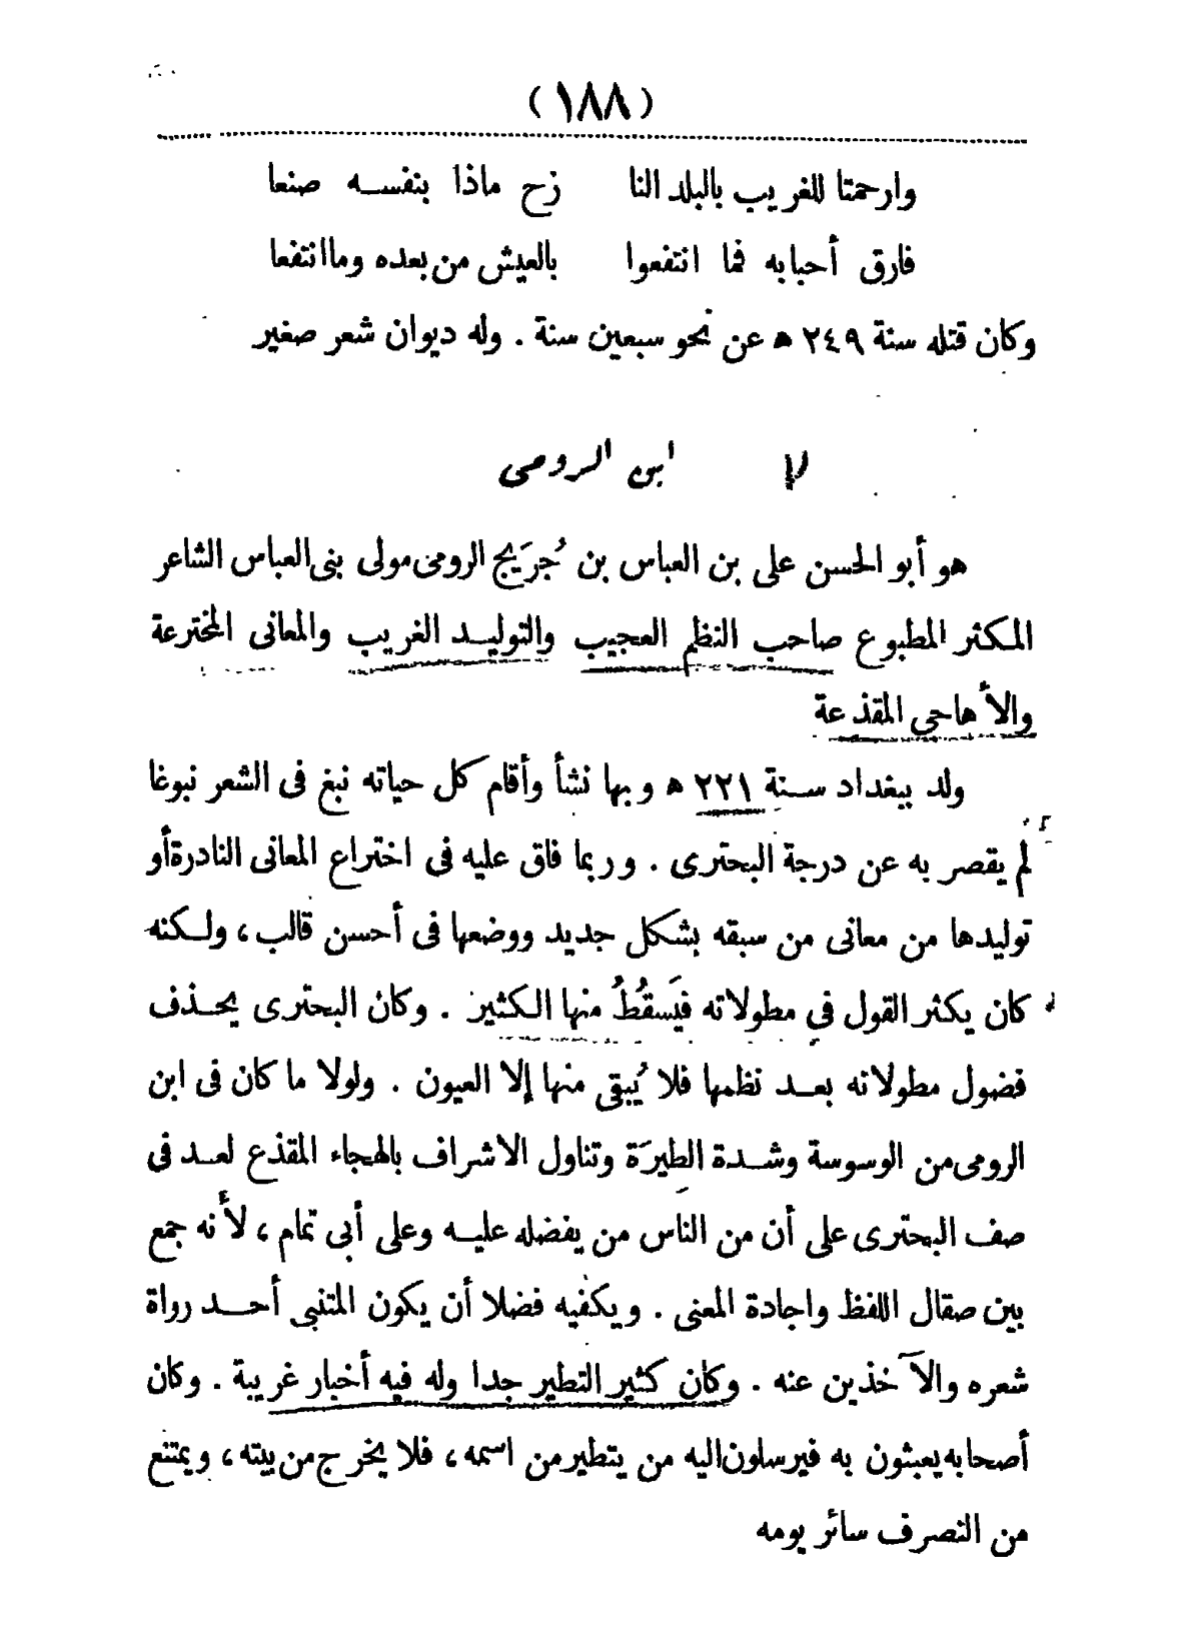 (١٨٨)
وارحمتا للغريب بالبلد النا زح ماذا بنفسه صنعا
فارق أحبابه فما انتفعوا بالعيش من بعده وما انتفعا
وكان قتله سنة ٢٤٩ ه عن نحو سبعين سنة . وله ديوان شعر صغير
ابن الرومى
هو أبو الحسن على بن العباس بن جُرَيج الرومى مولى بنى العباس الشاعر
المكثر المطبوع صاحب النظم العجيب والتوليد الغريب والمعانى المخترعة
والأهاجى المقذعة
ولد ببغداد سنة ٢٢١ ه وبها نشأ وأقام كل حياته نبغ فى الشعر نبوغا
لم يقصر به عن درجة البحترى . وربما فاق عليه فى اختراع المعانى النادرة أو
توليدها من معانى من سبقه بشكل جديد ووضعها فى أحسن قالب، ولكنه
كان يكثر القول فى مطولاته فيَسقُطُ منها الكثير . وكان البحترى يحذف
فضول مطولاته بعد نظمها فلا يُبقى منها إلا العيون . ولولا ما كان فى ابن
الرومى من الوسوسة وشدة الطيرَة وتناول الاشراف بالهجاء المقذع لعد فى
صف البحترى على أن من الناس من يفضله عليه وعلى أبى تمام، لأنه جمع
بين صقال اللفظ واجادة المعنى . ويكفيه فضلا أن يكون المتنبى أحد رواة
شعره والآخذين عنه . وكان كثير التطير جدا وله فيه أخبار غريبة . وكان
أصحابه يعبثون به فيرسلون اليه من يتطير من اسمه، فلا يخرج من بيته، ويمتنع
من التصرف سائر يومه